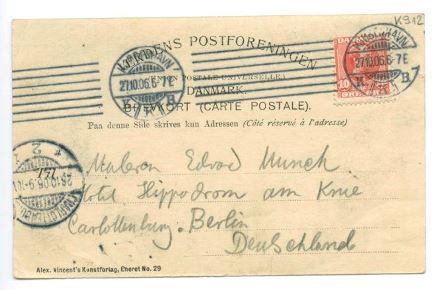 K 912
VERDENS POSTFORENINGEN
(UNION POSTALE UNIVERSELLE)
DANMARK.
BREVKORT (CARTE POSTALE).
Paa denne Side skrives kun Adressen (Côté réservé à l'adresse)
KJØBENHAVN
27.10.06.6-7E
K
B
KJØBENHAVN
27.10.06.6-7E
K
B
37
DANMARK
10
ØRE
CHARLOTTENBURG
28.10.06.9-10
* 2
Maleren Edvard Munch
Hotel Hippodrom am Knie
Carlottenburg. Berlin
Deutschland
Alex. Vincent's Kunstforlag, Eneret No. 29